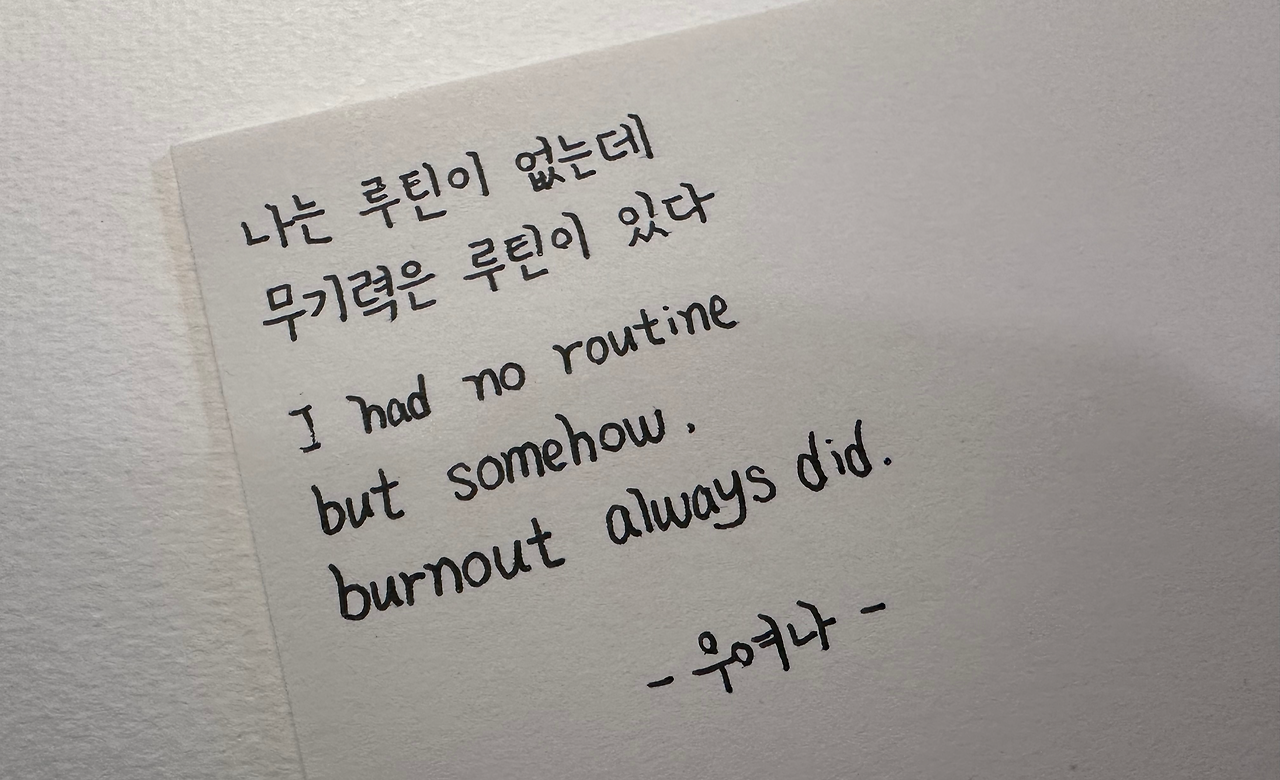 나는 루틴이 없는데
무기력은 루틴이 있다
I had no routine
but somehow.
burnout always did.
- 우여나 -